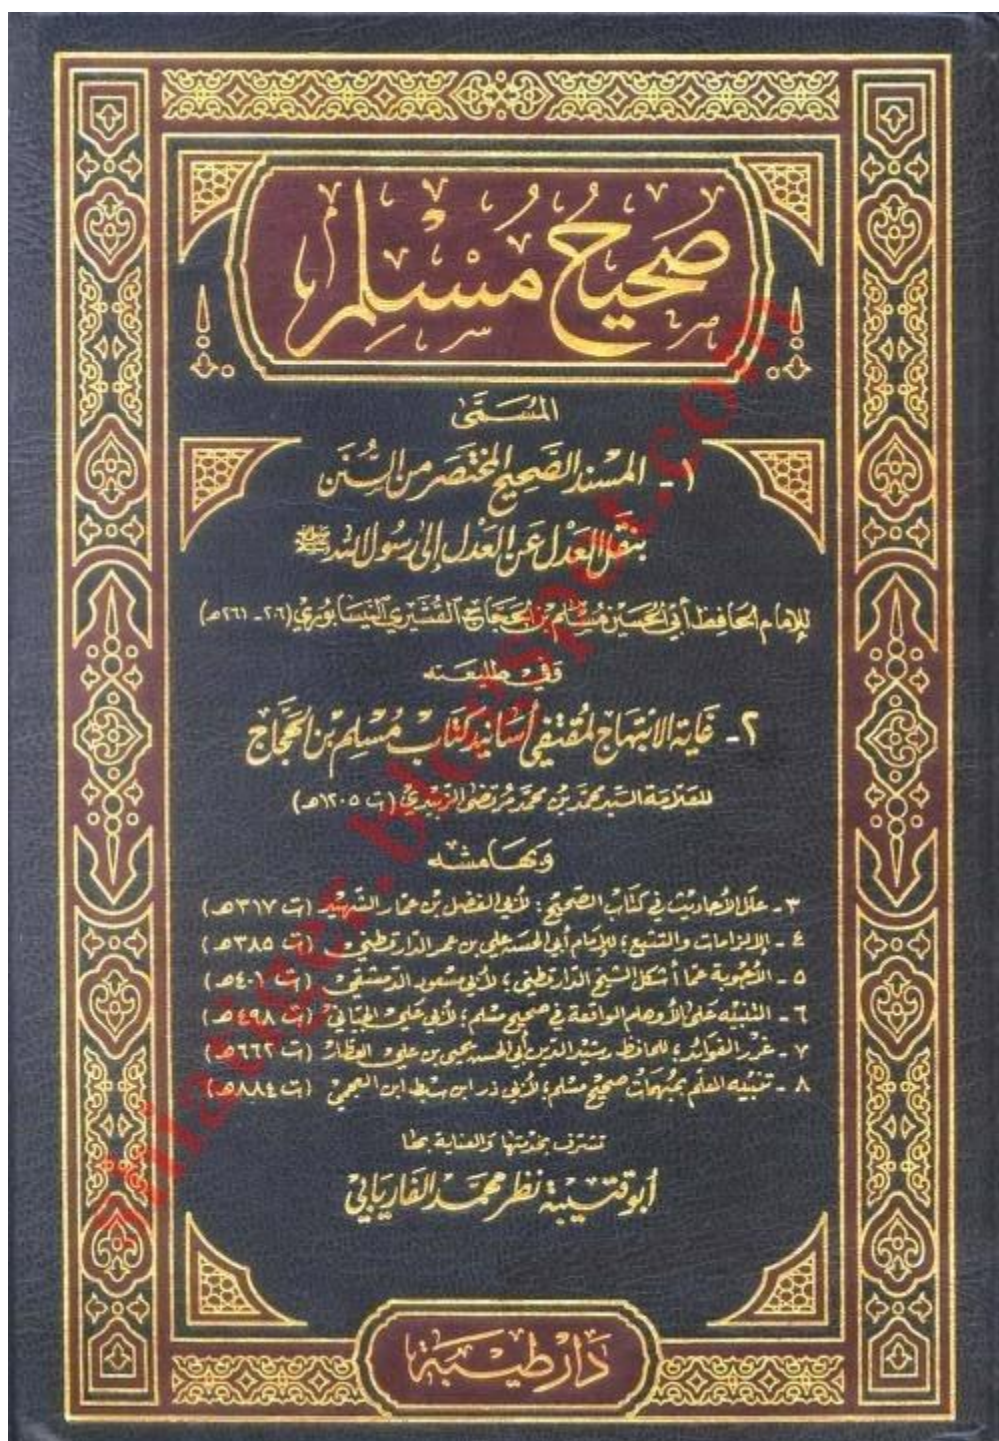 صَحِيحُ مُسْلِم
المُسَمَّى
١- المسْند الصَّحِيح المُختصَر من السُّنَن
بنَقل العَدْل عَن العَدْل إلى رسُول الله ﷺ
للإمام الحافظ أبي الحسين مُسْلم بن الحجاج القُشَيري النيسَابوري (٢٠٦-٢٦١هـ)
وَفي طليعَته
٢- غاية الابتهاج لمُقتفي أسَانيد كتاب مُسْلم بن الحَجَّاج
للعَلّامَة السَّيد محمّد بن محمّد مُرتضى الزَّبيدي (ت ١٢٠٥هـ)
وَبهَامشه
٣- علل الأحاديث في كتاب الصّحيح؛ لأبي الفضل بن عمّار الشّهيد (ت ٣١٧هـ)
٤- الإلزامات والتتبع؛ للإمام أبي الحسن علي بن عمر الدّارقطني (ت ٣٨٥هـ)
٥- الأجوبة عمّا أشكل الشيخ الدارقطني؛ لأبي مسعود الدّمشقي (ت ٤٠١هـ)
٦- التنبيه على الأوهام الواقعة في صحيح مسْلم؛ لأبي علي الجيّاني (ت ٤٩٨هـ)
٧- غرر الفوائد؛ للحافظ رشيد الدين أبي الحسين يحيى بن علي العطّار (ت ٦٦٢هـ)
٨- تنبيه المعلم بمُبهمات صحيح مسْلم؛ لأبي ذر ابن سبط ابن العجمي (ت ٨٨٤هـ)
تشرف بخدمتها وَالعناية بها
أبو قتيبة نظر محمّد الفاريَابي
دَار طيبَة